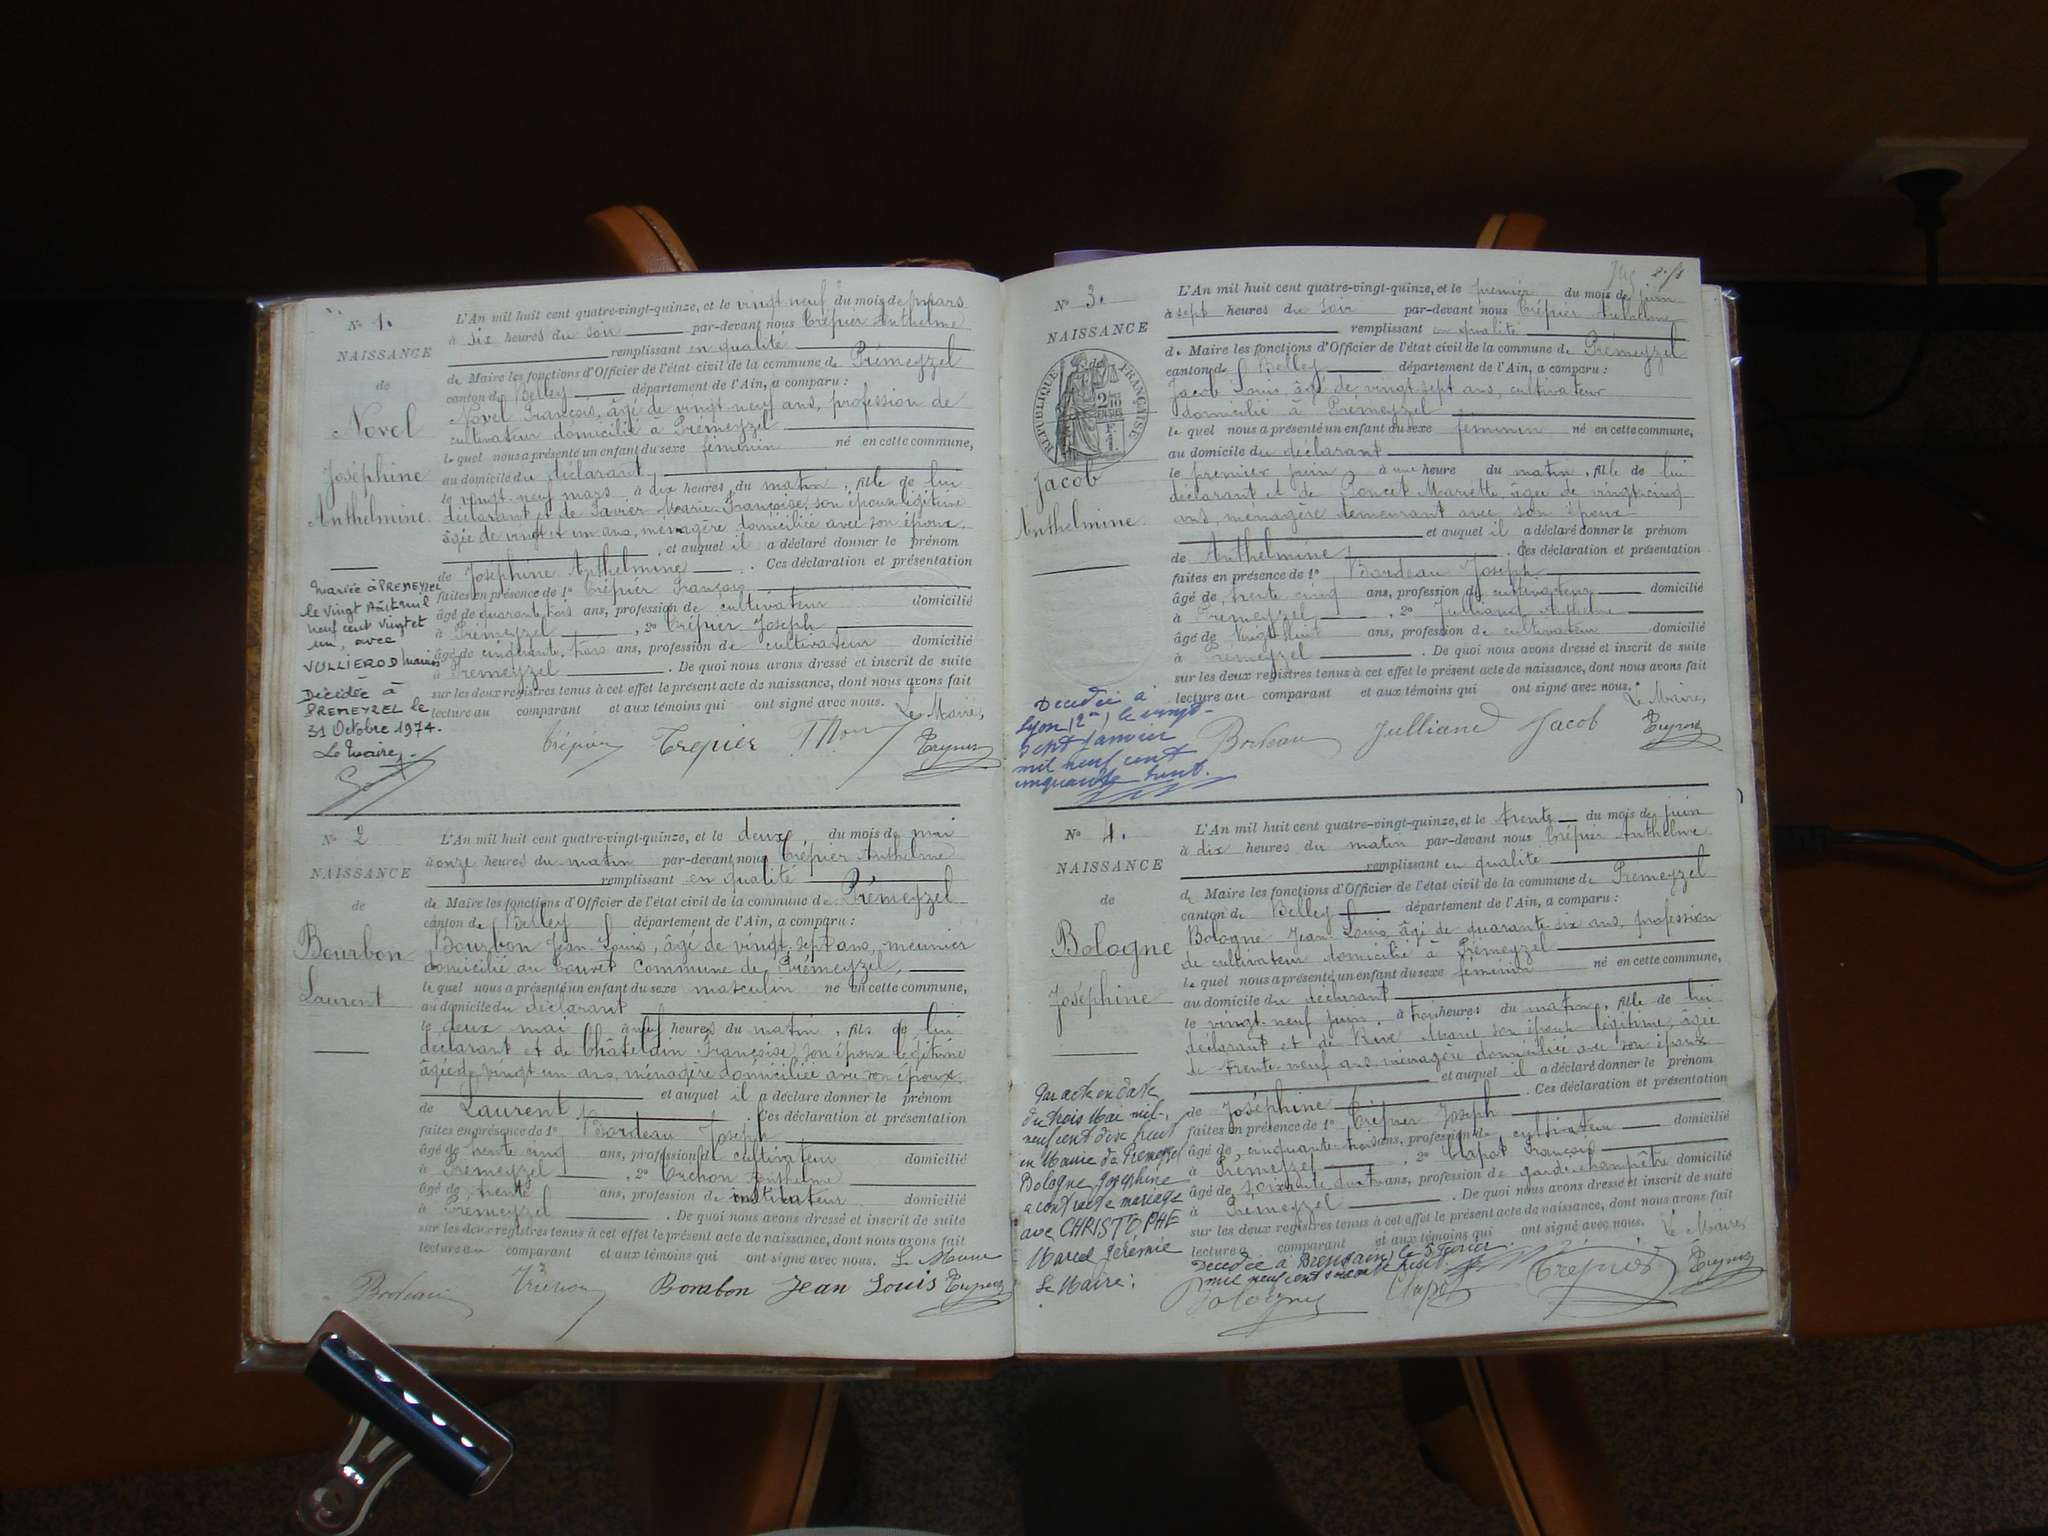 N° 1.
NAISSANCE
de
Novel
Joséphine
Anthelmine
Mariée à PREMEYZEL
le vingt Août mil
neuf cent vingt et
un, avec
VULLIEROD Marius
Décédée à
PREMEYZEL le
31 Octobre 1974.
Le Maire,
L'An mil huit cent quatre-vingt-quinze, et le vingt neuf du mois de mars
à six heures du soir par-devant nous Crépier Anthelme
remplissant en qualité
de Maire les fonctions d'Officier de l'état civil de la commune de Prémeyzel
canton de Belley département de l'Ain, a comparu :
Novel François, âgé de vingt neuf ans, profession de
cultivateur domicilié à Prémeyzel
le quel nous a présenté un enfant du sexe féminin né en cette commune,
au domicile du déclarant
le vingt-neuf mars à dix heures du matin, fille de lui
déclarant et de Marie-Françoise, son épouse légitime
âgée de vingt et un ans, ménagère domiciliée avec son époux.
et auquel il a déclaré donner le prénom
de Joséphine Anthelmine . Ces déclaration et présentation
faites en présence de 1° Crépier François
âgé de quarante trois ans, profession de cultivateur domicilié
à Prémeyzel , 2° Crépier Joseph
âgé de cinquante trois ans, profession de cultivateur domicilié
à Prémeyzel . De quoi nous avons dressé et inscrit de suite
sur les deux registres tenus à cet effet le présent acte de naissance, dont nous avons fait
lecture au comparant et aux témoins qui ont signé avec nous. Le Maire,
Crépier Crepier
N° 2
NAISSANCE
de
Bourbon
Laurent
L'An mil huit cent quatre-vingt-quinze, et le deux du mois de mai
à onze heures du matin par-devant nous Crépier Anthelme
remplissant en qualité
de Maire les fonctions d'Officier de l'état civil de la commune de Prémeyzel
canton de Belley département de l'Ain, a comparu :
Bourbon Jean-Louis, âgé de vingt-sept ans, meunier
domicilié au commune de Prémeyzel,
le quel nous a présenté un enfant du sexe masculin né en cette commune,
au domicile du déclarant
le deux mai à neuf heures du matin, fils de lui
déclarant et de Châtelain Françoise, son épouse légitime
âgée de vingt un ans, ménagère domiciliée avec son époux.
et auquel il a déclaré donner le prénom
de Laurent . Ces déclaration et présentation
faites en présence de 1° Bordeau Joseph
âgé de trente cinq ans, profession de cultivateur domicilié
à Prémeyzel , 2° Anthelme
âgé de trente ans, profession de instituteur domicilié
à Prémeyzel . De quoi nous avons dressé et inscrit de suite
sur les deux registres tenus à cet effet le présent acte de naissance, dont nous avons fait
lecture au comparant et aux témoins qui ont signé avec nous. Le Maire
Bordeau Bourbon Jean Louis
N° 3.
NAISSANCE
RÉPUBLIQUE FRANÇAISE
Jacob
Anthelmine
Décédée à
Lyon (2me) le vingt-
sept janvier
mil neuf cent
cinquante huit.
L'An mil huit cent quatre-vingt-quinze, et le premier du mois de juin
à sept heures du soir par-devant nous Crépier Anthelme
remplissant en qualité
de Maire les fonctions d'Officier de l'état civil de la commune de Prémeyzel
canton de Belley département de l'Ain, a comparu :
Jacob Louis, âgé de vingt sept ans, cultivateur
domicilié à Prémeyzel
le quel nous a présenté un enfant du sexe féminin né en cette commune,
au domicile du déclarant
le premier juin à une heure du matin, fille de lui
déclarant et de Poncet Mariette, âgée de vingt-cinq
ans, ménagère demeurant avec son époux
et auquel il a déclaré donner le prénom
de Anthelmine . Ces déclaration et présentation
faites en présence de 1° Bordeau Joseph
âgé de trente cinq ans, profession de cultivateur domicilié
à Prémeyzel , 2° Julliand Anthelme
âgé de vingt-huit ans, profession de cultivateur domicilié
à Prémeyzel . De quoi nous avons dressé et inscrit de suite
sur les deux registres tenus à cet effet le présent acte de naissance, dont nous avons fait
lecture au comparant et aux témoins qui ont signé avec nous. Le Maire,
Bordeau Julliand Jacob
N° 4.
NAISSANCE
de
Bologne
Joséphine
Par acte en date
du trois Mai mil-
neuf cent dix neuf
en Mairie de Prémeyzel
Bologne Joséphine
a contracté mariage
avec CHRISTOPHE
Marcel Jérémie
Le Maire :
L'An mil huit cent quatre-vingt-quinze, et le trente du mois de juin
à dix heures du matin par-devant nous Crépier Anthelme
remplissant en qualité
de Maire les fonctions d'Officier de l'état civil de la commune de Prémeyzel
canton de Belley département de l'Ain, a comparu :
Bologne Jean-Louis, âgé de quarante-six ans, profession
de cultivateur domicilié à Prémeyzel
le quel nous a présenté un enfant du sexe féminin né en cette commune,
au domicile du déclarant
le vingt-neuf juin, à trois heures du matin, fille de lui
déclarant et de Rive Marie son épouse légitime, âgée
de trente-neuf ans, ménagère domiciliée avec son époux
et auquel il a déclaré donner le prénom
de Joséphine . Ces déclaration et présentation
faites en présence de 1° Crépier Joseph
âgé de cinquante-trois ans, profession de cultivateur domicilié
à Prémeyzel , 2° Clapot François
âgé de soixante ans, profession de garde champêtre domicilié
à Prémeyzel . De quoi nous avons dressé et inscrit de suite
sur les deux registres tenus à cet effet le présent acte de naissance, dont nous avons fait
lecture a comparant et aux témoins qui ont signé avec nous. Le Maire,
Décédée à le 5 Février
mil neuf cent soixante huit.
Bologne Clapot Crépier